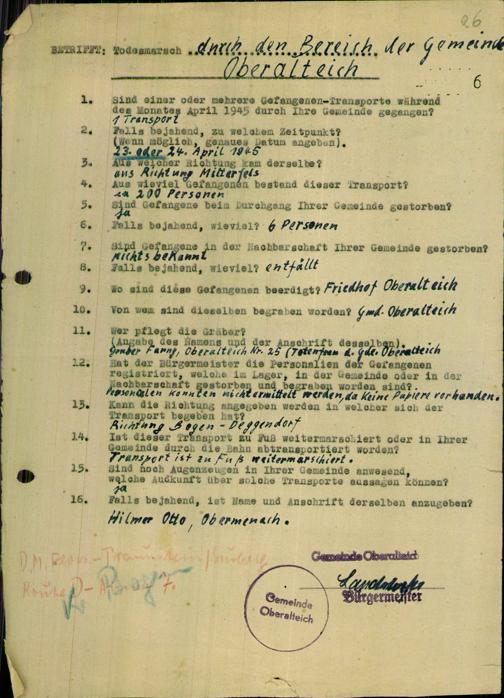 26
BETRIFFT: Todesmarsch durch den Bereich der Gemeinde
Oberalteich
6
1. Sind einer oder mehrere Gefangenen-Transporte während
des Monates April 1945 durch Ihre Gemeinde gegangen?
1 Transport
2. Falls bejahend, zu welchem Zeitpunkt?
(Wenn möglich, genaues Datum angeben).
23. oder 24. April 1945
3. Aus welcher Richtung kam derselbe?
aus Richtung Mitterfels
4. Aus wieviel Gefangenen bestand dieser Transport?
ca 200 Personen
5. Sind Gefangene beim Durchgang Ihrer Gemeinde gestorben?
ja
6. Falls bejahend, wieviel? 6 Personen
7. Sind Gefangene in der Nachbarschaft Ihrer Gemeinde gestorben?
nichts bekannt
8. Falls bejahend, wieviel? entfällt
9. Wo sind diese Gefangenen beerdigt? Friedhof Oberalteich
10. Von wem sind dieselben begraben worden? Gmd. Oberalteich
11. Wer pflegt die Gräber?
(Angabe des Namens und der Anschrift desselben).
Oberalteich Nr. 25 (Totenfrau d. Gde. Oberalteich
12. Hat der Bürgermeister die Personalien der Gefangenen
registriert, welche in Lager, in der Gemeinde oder in der
Nachbarschaft gestorben und begraben worden sind?
Personalien konnten nicht ermittelt werden, da keine Papiere vorhanden.
13. Kann die Richtung angegeben werden in welcher sich der
Transport begeben hat?
Richtung Bogen - Deggendorf
14. Ist dieser Transport zu Fuß weitermarschiert oder in Ihrer
Gemeinde durch die Bahn abtransportiert worden?
Transport ist zu Fuß weitermarschiert.
15. Sind noch Augenzeugen in Ihrer Gemeinde anwesend,
welche Auskunft über solche Transporte aussagen können?
ja
16. Falls bejahend, ist Name und Anschrift derselben anzugeben?
Hilmer Otto, Obermenach.
D.M.
Route
Gemeinde Oberalteich
Bürgermeister
Gemeinde
Oberalteich